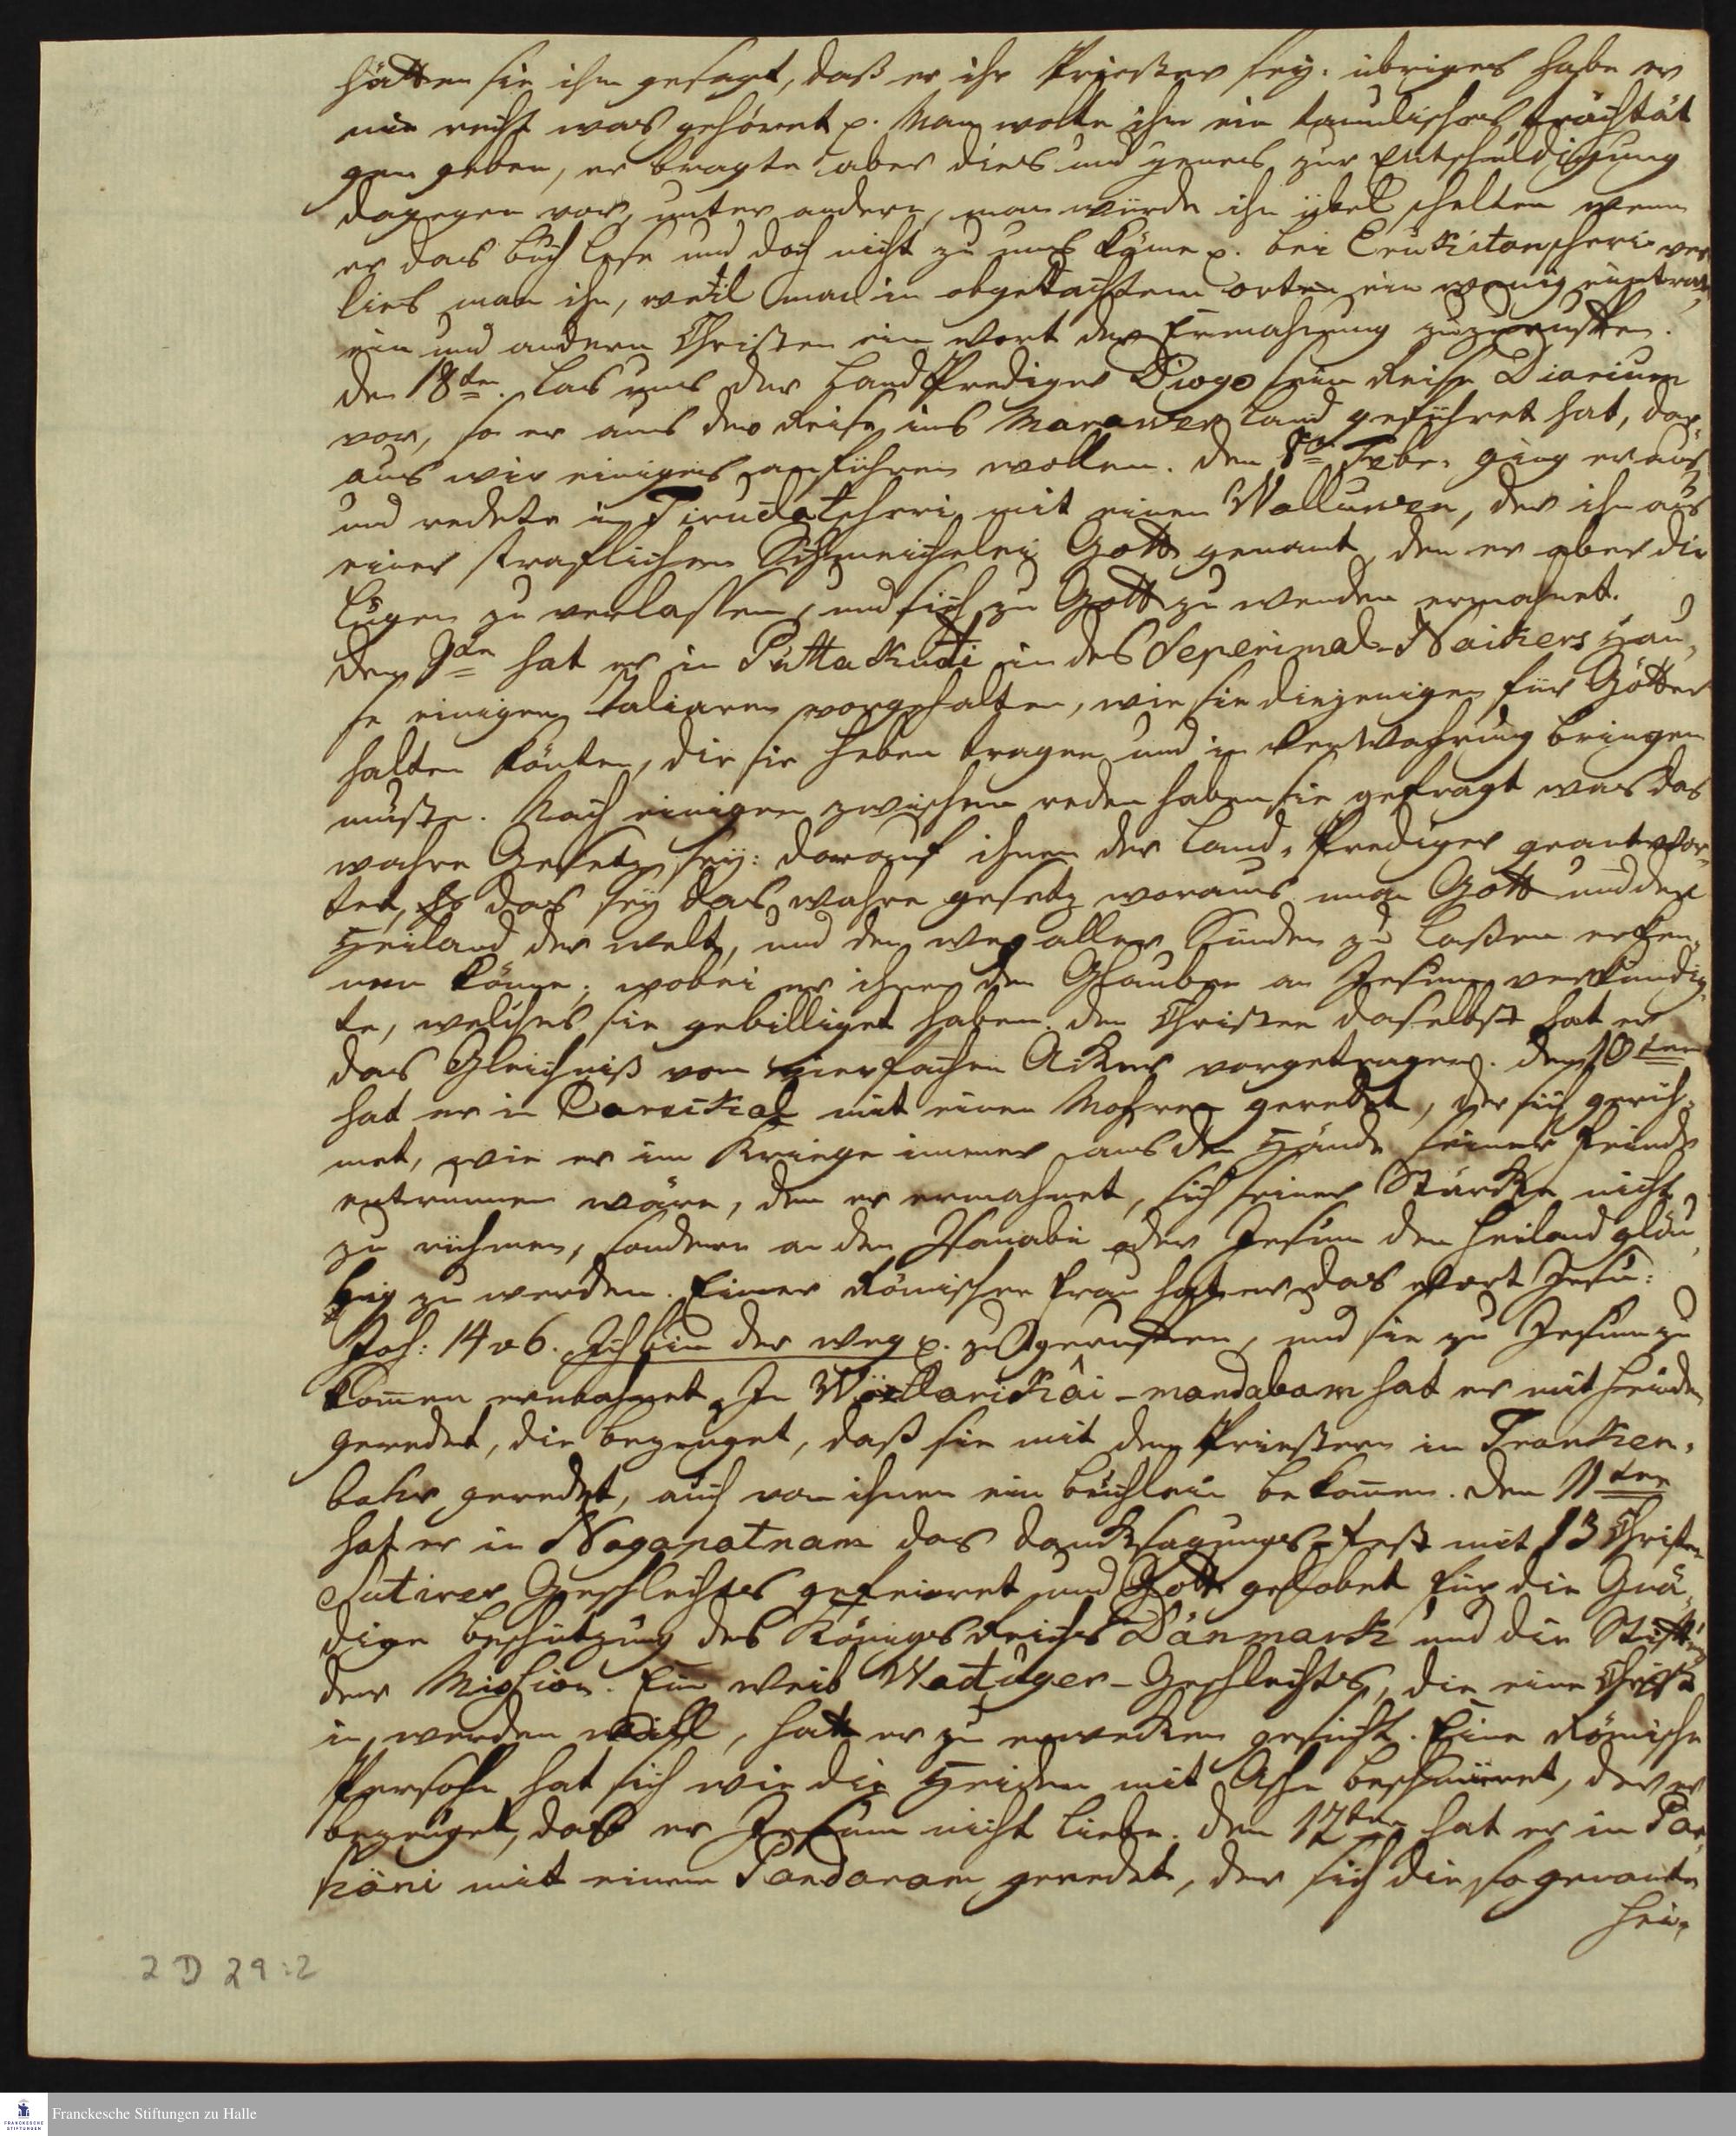 hätten sie ihm gesagt, daß er ihr Priester sey: übriges habe er
nie recht was gehöret p. Man wolte ihm ein tamulisches trächtät
gen geben, er bragte aber dies und yenes zur Entschuldigung
dagegen vor, unter andern, man würde ihn übel schelten wenn
er das buch lese und doch nicht zu uns käme p. bei Crukitanscheri ver
lies man ihn, weil man in obgedachtem orten ein wenig eintrat,
ein und andern Christen ein Wort der Ermahnung zuzuruffen.
den 18ten. las uns der Land Prediger Diogo sein Reise Diarium
vor, so er auf der Reise ins Marawer Land geführet hat, dar-
aus wir einiges anführen wollen. den 8ten Febr. ging er aus
und redete in Tirudatscheri mit einen Walluwen, der ihn aus
einer straflichen Schmeichelei Gott genant, den er aber die
Lügen zu verlassen, und sich zu Gott zu wenden ermahnet.
den 9ten hat er in Puttakudi in des Seperimal-Naikers Hau,
se einigen Taliaren vorgehalten, wie sie diejenigen für Götter
halten könten, die sie heben tragen und in Verwahrung bringen
müste. Nach einigen zwischen reden haben sie gefragt was das
wahre Gesetz sey: darauf ihnen der Land-Prediger geantwor-
tet, das sey das wahre gesetz woraus man Gott und den
Heiland der welt, und den weg aller Sünden zu laßen erken-
nen könne; wobei er ihnen den Glauben an Jesum verkündig-
te, welches sie gebilliget haben. den Christen daselbst hat er
das Gleichniß vom vierfachen Acker vorgetragen. den 10ten
hat er in Careikal mit einen Mohren geredet, der sich gerüh-
met, wie er im Kriege immer aus den Hände seiner Feinde
entrunnen wäre, den er ermahnet, sich seiner Stärke nicht
zu rühmen, sondern an den Nanabi oder Jesum den Heiland gläu,
big zu werden. Einer Römischen Frau hat er das Wort Jesu:
Joh: 14 v 6. Ich bin der weg p. zugeruffen, und sie zu Jesum zu
kommen ermahnet. In Wöllarikâi-mandabam hat er mit Heiden
geredet, die bezeuget, daß sie mit den Priestern in Tranken,
bahr geredet, auch von ihnen ein büchlein bekommen. den 11ten
hat er in Nagapatnam das Dancksagungs-Fest mit 13 Christen
Sutirer Geschlechtes gefeiret und Gott gelobet für die Gnä,
dige Beschützung des Königs Reichs Dänmark und die Stift
der Mission. Ein Weib Wadüger-Geschlechts, die eine Christ
in werden will, hat er zu erwecken gesucht. Eine Römische
Persohn hat sich wie die Heiden mit Asche beschmieret, der er
bezeuget, daß er Jesum nicht liebe. den 12ten hat er in Par,
häni mit einem Pandaram geredet, der sich die so genante
hei,
2 D 29:2
Franckesche Stiftungen zu Halle